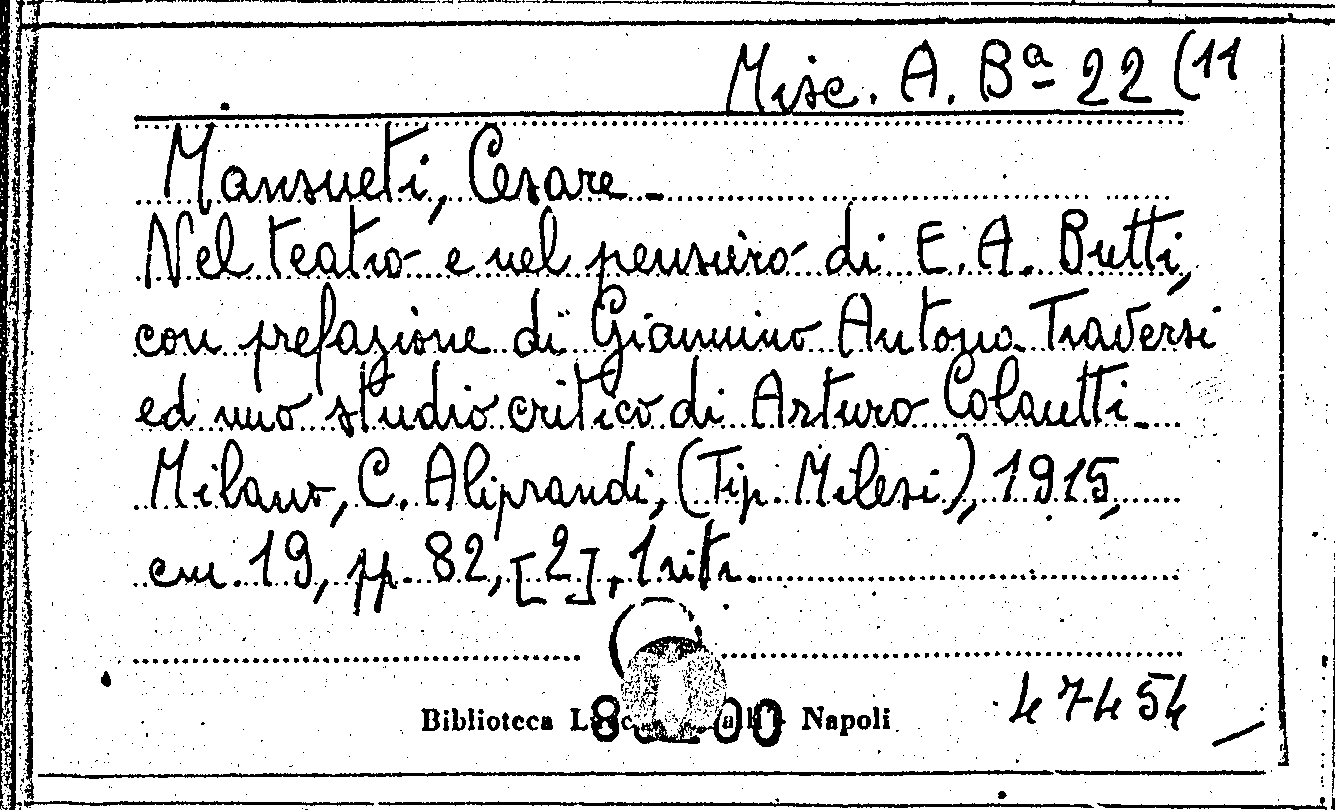 Misc. A. Bª 22 (11
Mansueti, Cesare -
Nel teatro e nel pensiero di E. A. Butti,
con prefazione di Giannino Antona Traversi
ed uno studio critico di Arturo Colautti -
Milano, C. Aliprandi, (Tip. Milesi), 1915,
cm. 19, pp. 82, [2], 1 ritr.
Biblioteca Napoli
47454